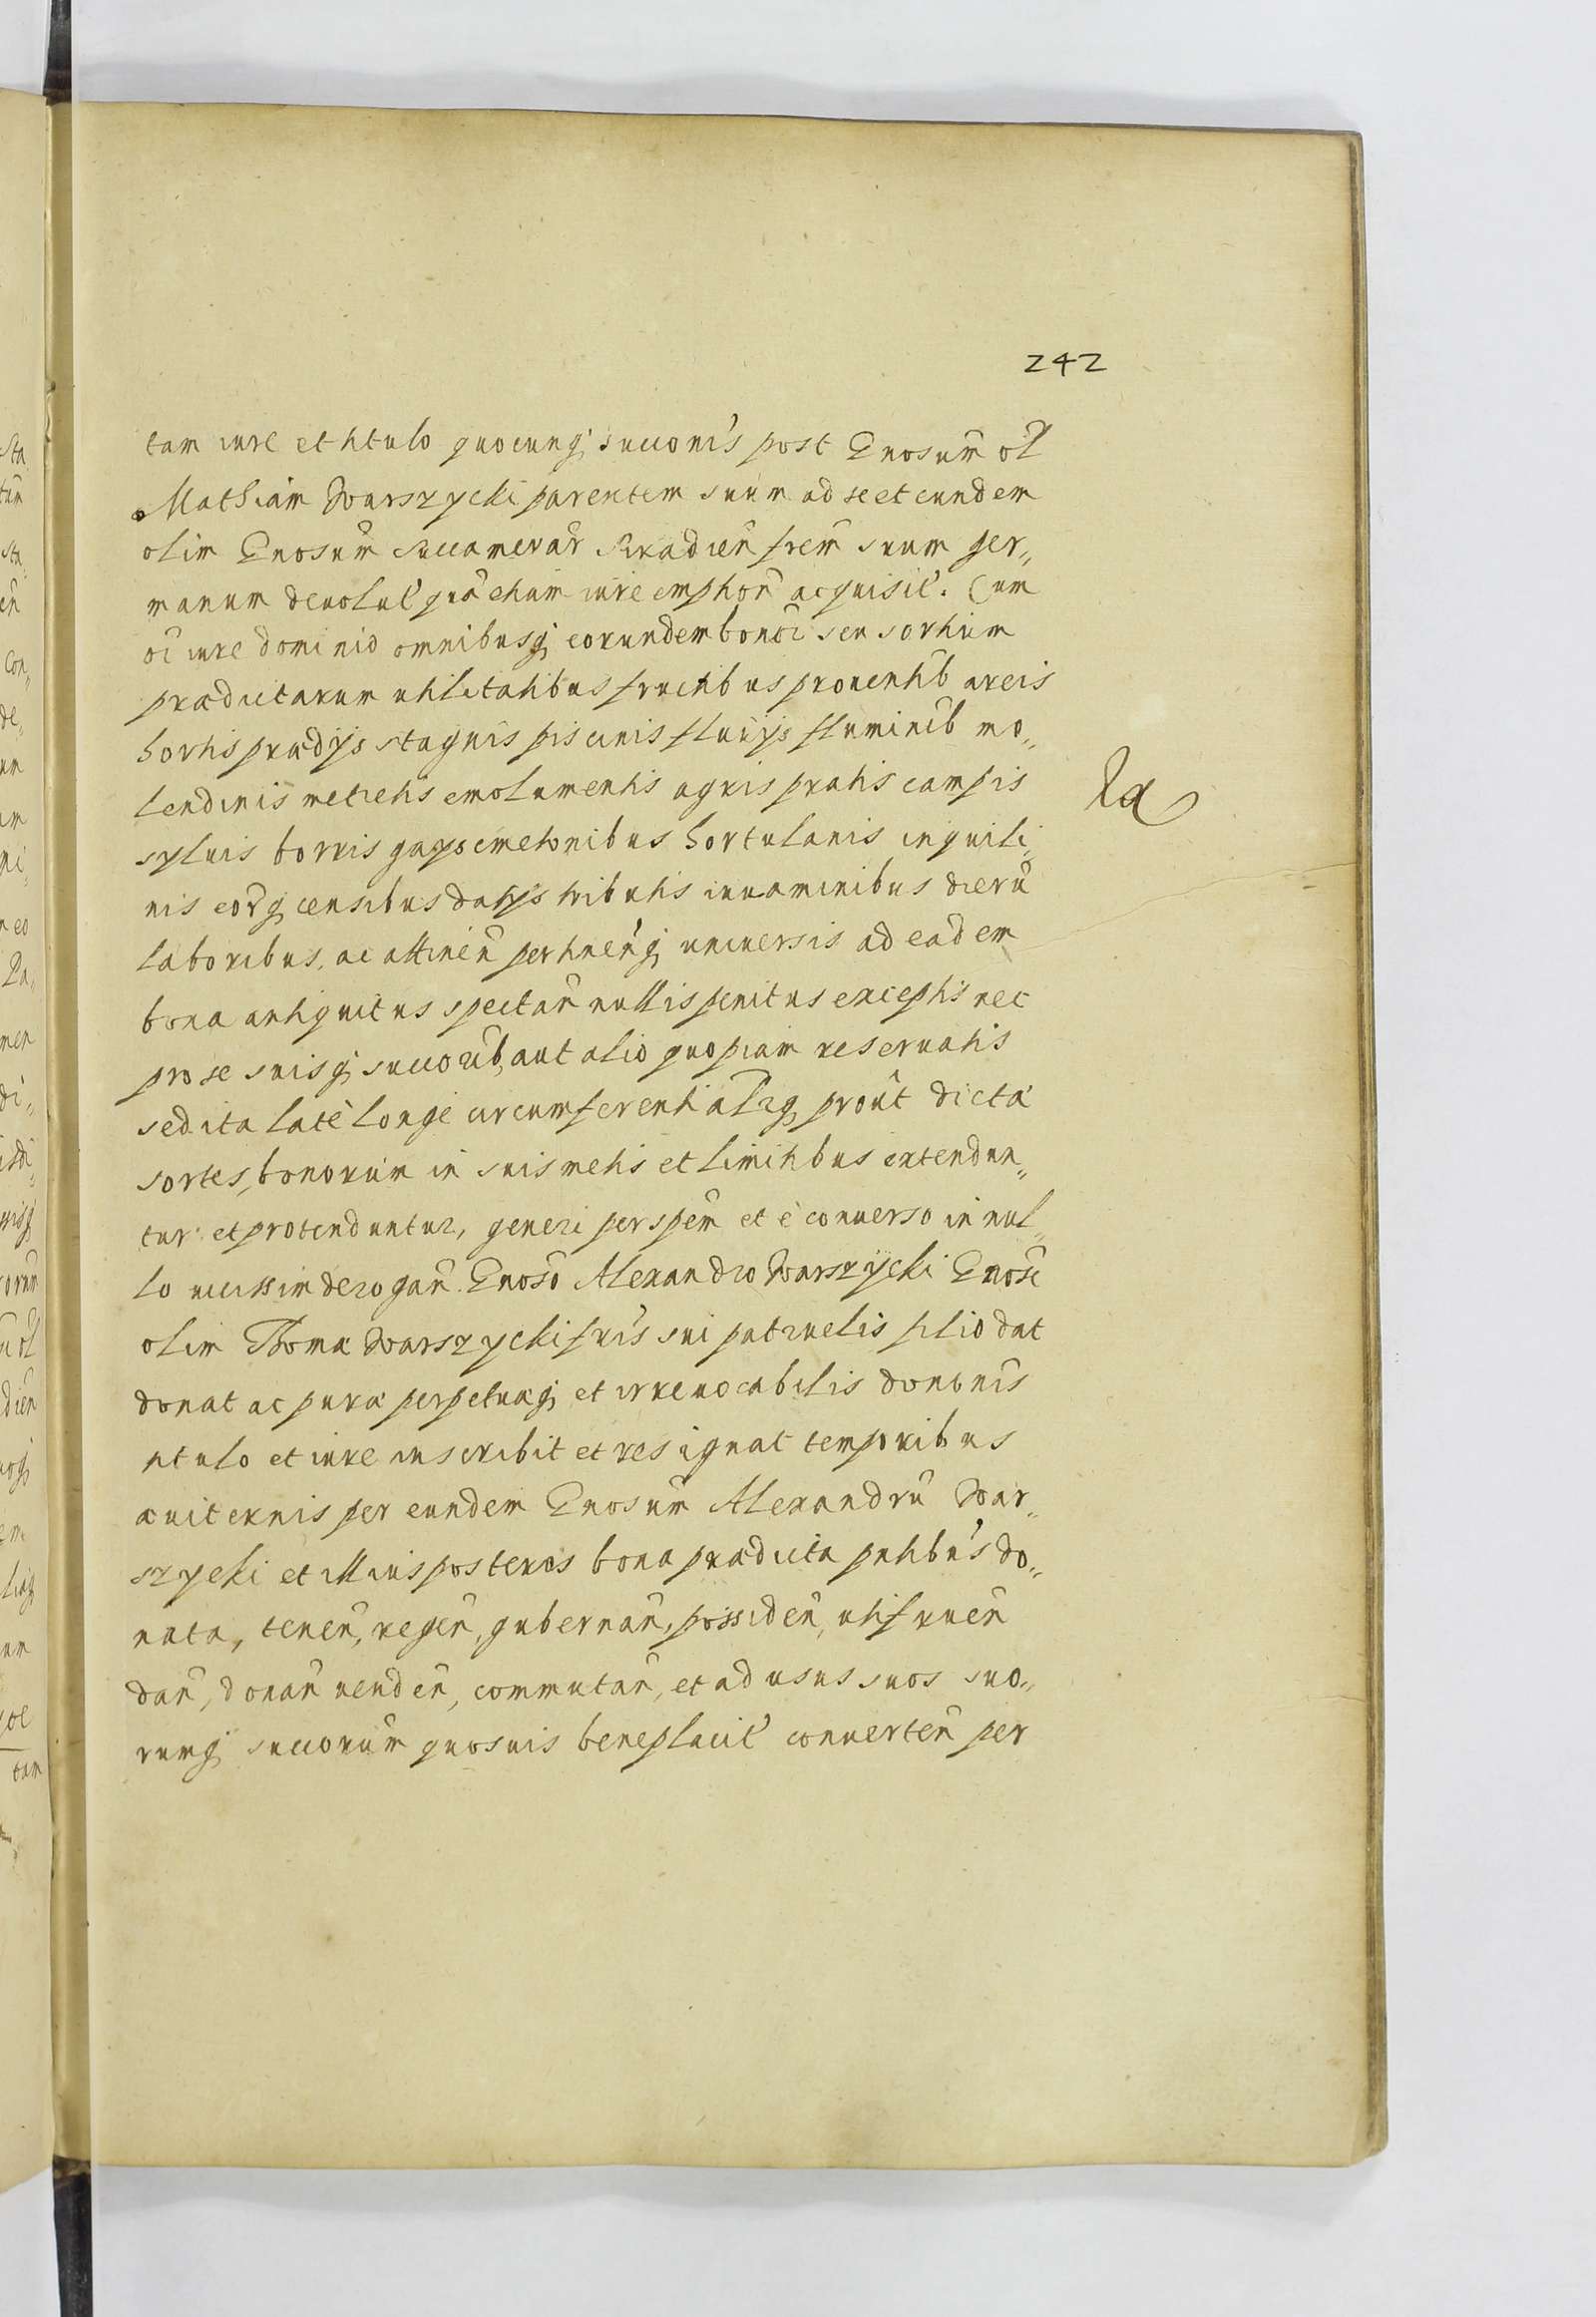 242
tam iure et titulo quocunq, succonis post Gnosum ol
Mathiam Warszycki parentem suum ad se et eundem
olim Gnosum Succamerar Siradien frem suum ger„
manum devolut quã etiam iure empton acquisit. Cum
oi iure dominio omnibusq, eorundem bonor seu sortium
prædictarum utilitatibus fructibus prouentib areis
hortis prædijs stagnis piscinis fluuijs fluminib mo„
lendinis metretis emolumentis agris pratis campis
syluis borris gays cmetonibus hortulanis inquili„
nis eorq, censibus datijs tributis iuuaminibus dierũ
laboribus, ac attinen pertinenq, uniuersis ad eadem
bona antiquitus spectan nullis penitus exceptis nec
pro se suisq, succorib, aut alio quopiam reseruatis
sed ita latè longè circumferentialrq, proût dicta
sortes, bonorum in suis metis et limitibus extendun„
tur et protenduntur, generi per spem et è conuerso in nul„
lo derogan. Gnoso Alexandro Warszycki Gnosi
olim Thomæ Warszycki fris sui patruelis filio dat
donat ac puræ perpetuæq, et irreuocabilis dononis
titulo et iure inscribit et resignat temporibus
æuiternis per eundem Gnosum Alexandrũ War„
szycki et illius posteros bona prædicta pntibus do„
nata, tenen, regen, gubernan, possiden, utifruen
dan, donan uenden, commutan, et ad usus suos suo„
rumq, succorum quosuis beneplacit conuerten per